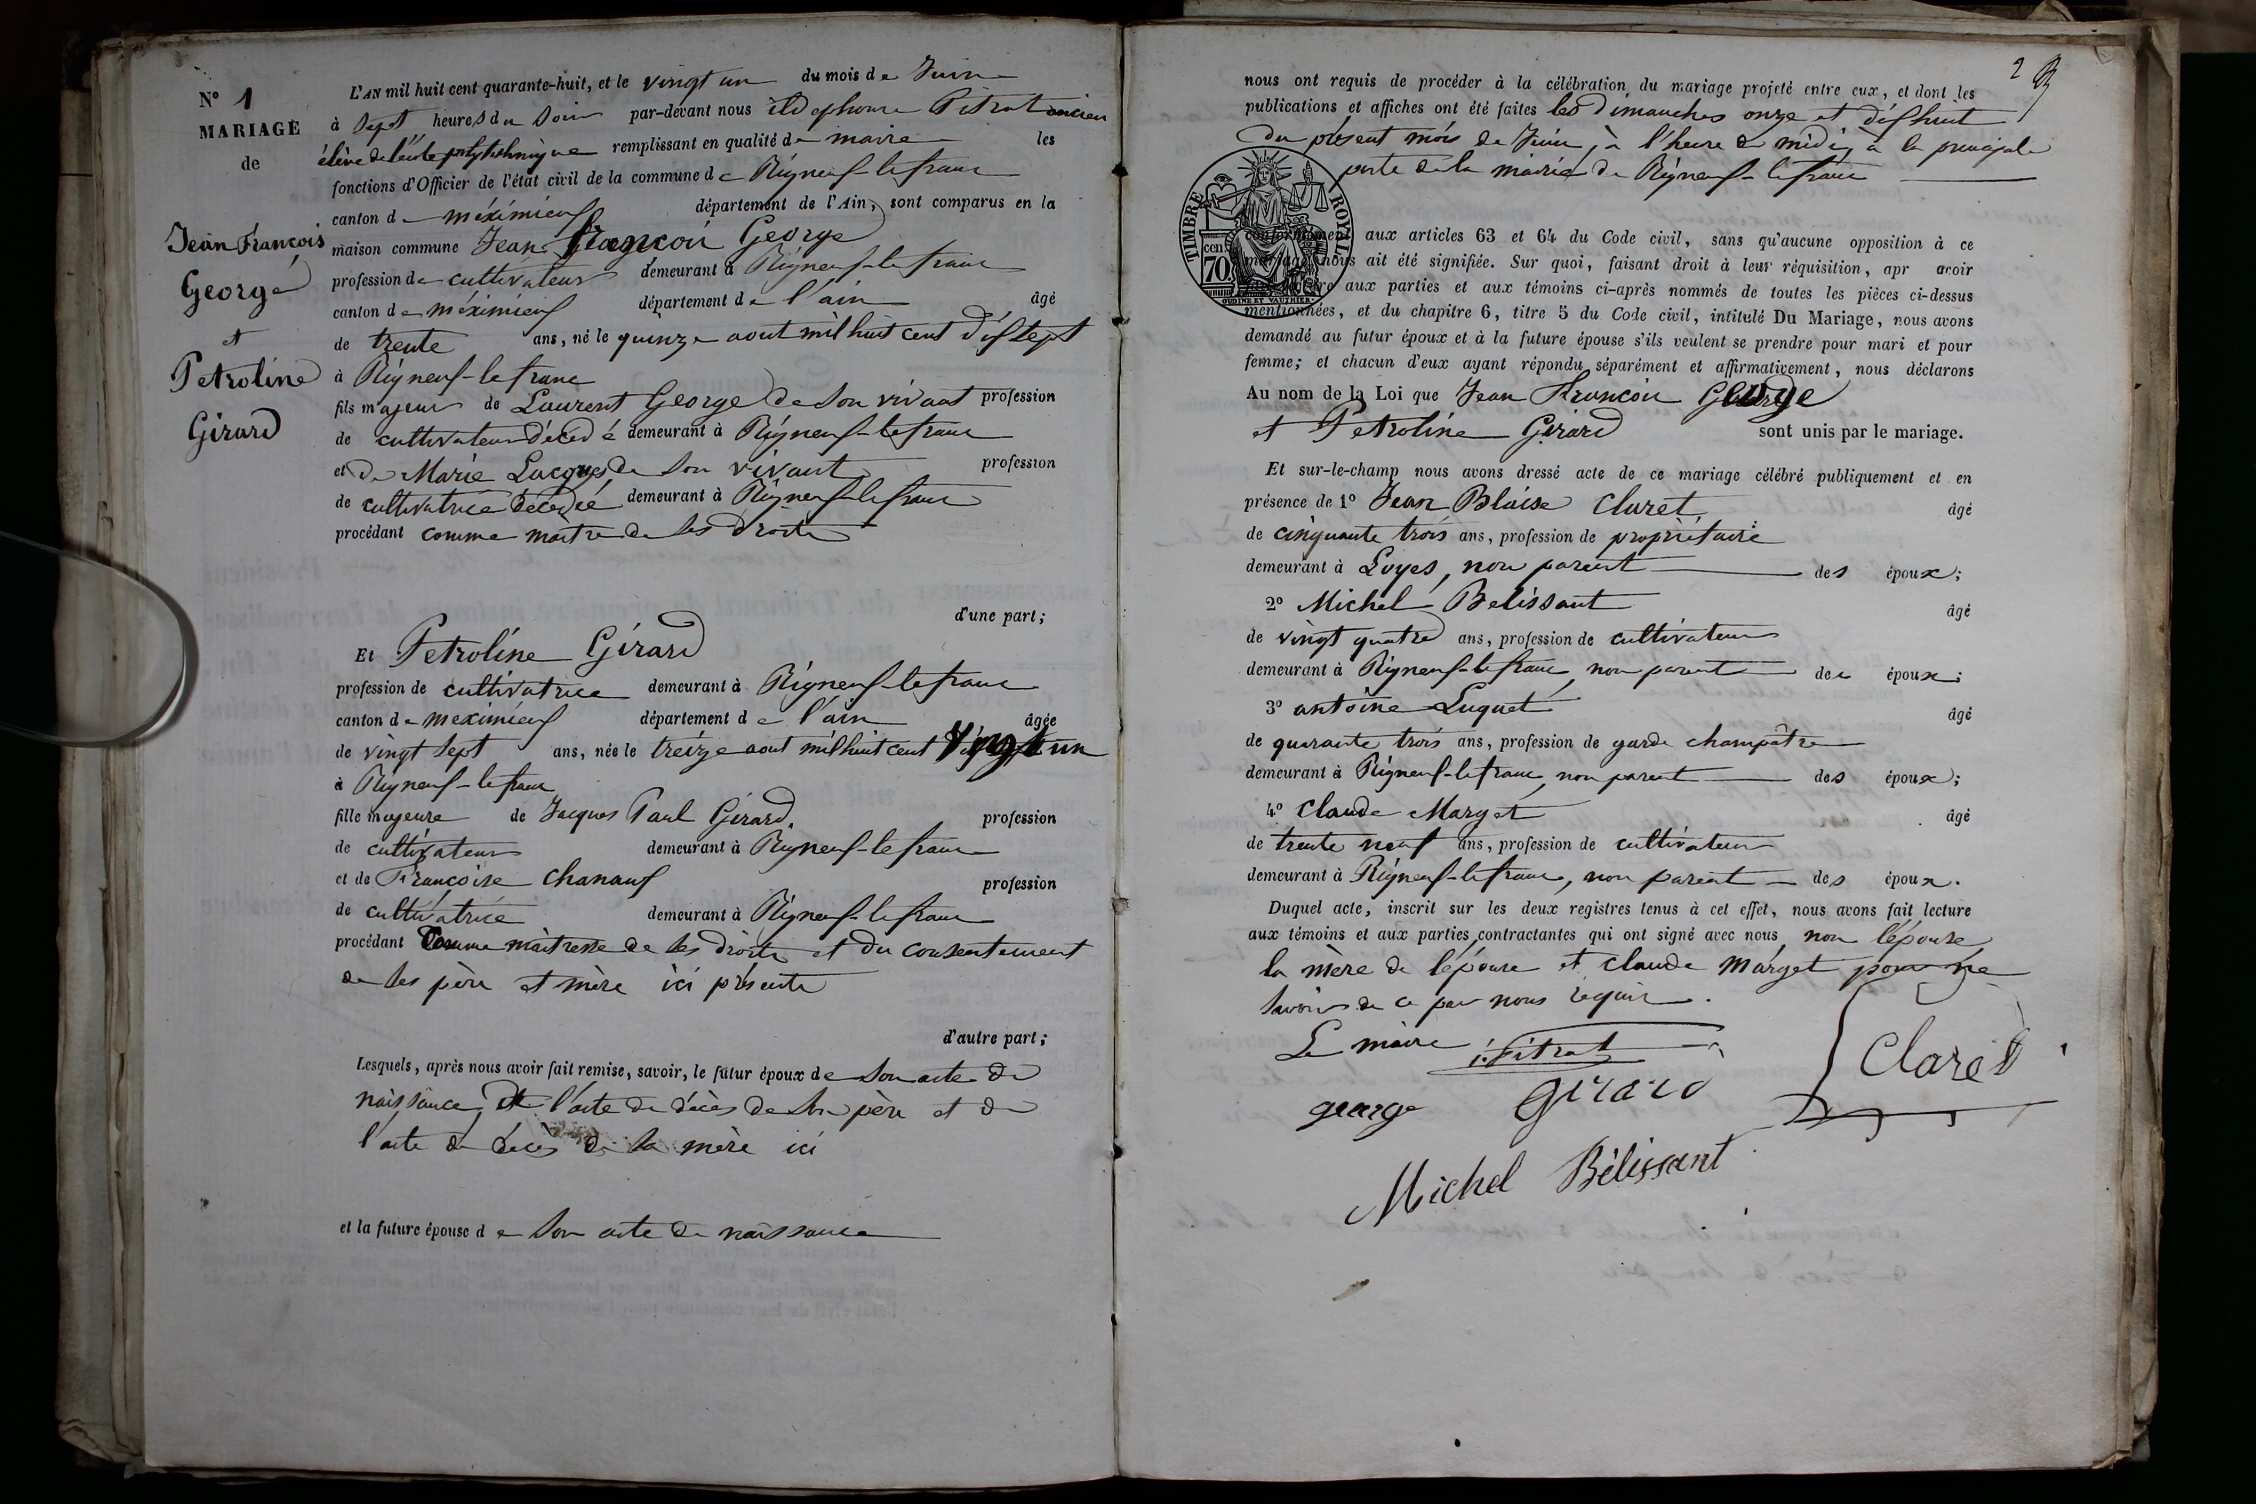 N° 1
MARIAGE
de
Jean François
George
et
Petroline
Girard
L'AN mil huit cent quarante-huit, et le vingt un du mois de Juin
à Sept heures du Soir par-devant nous ildephonse Pitrat ancien
élève de l'école polytechnique remplissant en qualité de maire les
fonctions d'Officier de l'état civil de la commune de Rigneux-le franc
canton de méximieux département de l'Ain, sont comparus en la
maison commune Jean François George
profession de cultivateur demeurant à Rigneux-le franc
canton de méximieux département de l'ain âgé
de trente ans, né le quinze aout mil huit cent dix sept
à Rigneux-le franc
fils majeur de Laurent George de Son vivant profession
de cultivateur décédé demeurant à Rigneux-le franc
et de Marie Lacques de Son vivant profession
de cultivatrice décédée demeurant à Rigneux-le franc
procédant comme maître de Ses droits
d'une part;
Et Petroline Girard
profession de cultivatrice demeurant à Rigneux-le franc
canton de meximieux département de l'ain âgée
de vingt Sept ans, née le treize aout mil huit cent vingt un
à Rigneux-le franc
fille majeure de Jacques Paul Girard profession
de cultivateur demeurant à Rigneux-le franc
et de Françoise Chanauf profession
de cultivatrice demeurant à Rigneux-le franc
procédant Comme maîtresse de Ses droits et du consentement
de Ses père et mère ici présents
d'autre part;
Lesquels, après nous avoir fait remise, savoir, le futur époux de Son acte de
naissance, de l'acte de décès de Son père et de
l'acte de décès de Sa mère ici
et la future épouse de Son acte de naissance
2
nous ont requis de procéder à la célébration du mariage projeté entre eux, et dont les
publications et affiches ont été faites les Dimanches onze et dix huit
du présent mois de Juin, à l'heure de midi, à la principale
porte de la mairie de Rigneux-le franc
TIMBRE ROYAL
70 cen
OUDINÉ ET VAUTHIER
conformément aux articles 63 et 64 du Code civil, sans qu'aucune opposition à ce
mariage nous ait été signifiée. Sur quoi, faisant droit à leur réquisition, apr avoir
aux parties et aux témoins ci-après nommés de toutes les pièces ci-dessus
mentionnées, et du chapitre 6, titre 5 du Code civil, intitulé Du Mariage, nous avons
demandé au futur époux et à la future épouse s'ils veulent se prendre pour mari et pour
femme; et chacun d'eux ayant répondu séparément et affirmativement, nous déclarons
Au nom de la Loi que Jean François George
et Petroline Girard sont unis par le mariage.
Et sur-le-champ nous avons dressé acte de ce mariage célébré publiquement et en
présence de 1° Jean Blaise Claret âgé
de cinquante trois ans, profession de propriétaire
demeurant à Loyes, non parent des époux;
2° Michel Belissant âgé
de vingt quatre ans, profession de cultivateur
demeurant à Rigneux-le franc, non parent des époux;
3° antoine Luguet âgé
de quarante trois ans, profession de garde champêtre
demeurant à Rigneux-le franc, non parent des époux;
4° Claude Marget âgé
de trente neuf ans, profession de cultivateur
demeurant à Rigneux-le franc, non parent des époux.
Duquel acte, inscrit sur les deux registres tenus à cet effet, nous avons fait lecture
aux témoins et aux parties contractantes qui ont signé avec nous non l'épouse,
la mère de l'épouse et claude marget pour ne
Savoir de ce par nous requis.
Le maire i. Pitrat
george Girard Claret
Michel Bélissant